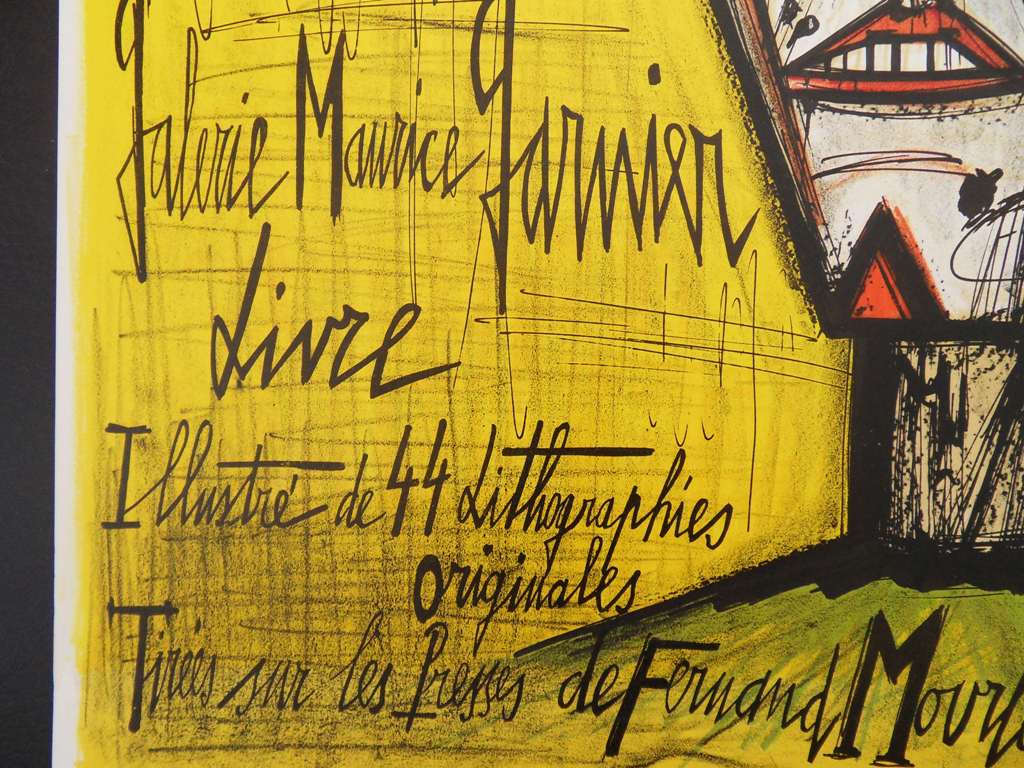 Galerie Maurice Garnier
Livre
Illustré de 44 Lithographies
originales
Tirées sur les Presses de Fernand Mourl